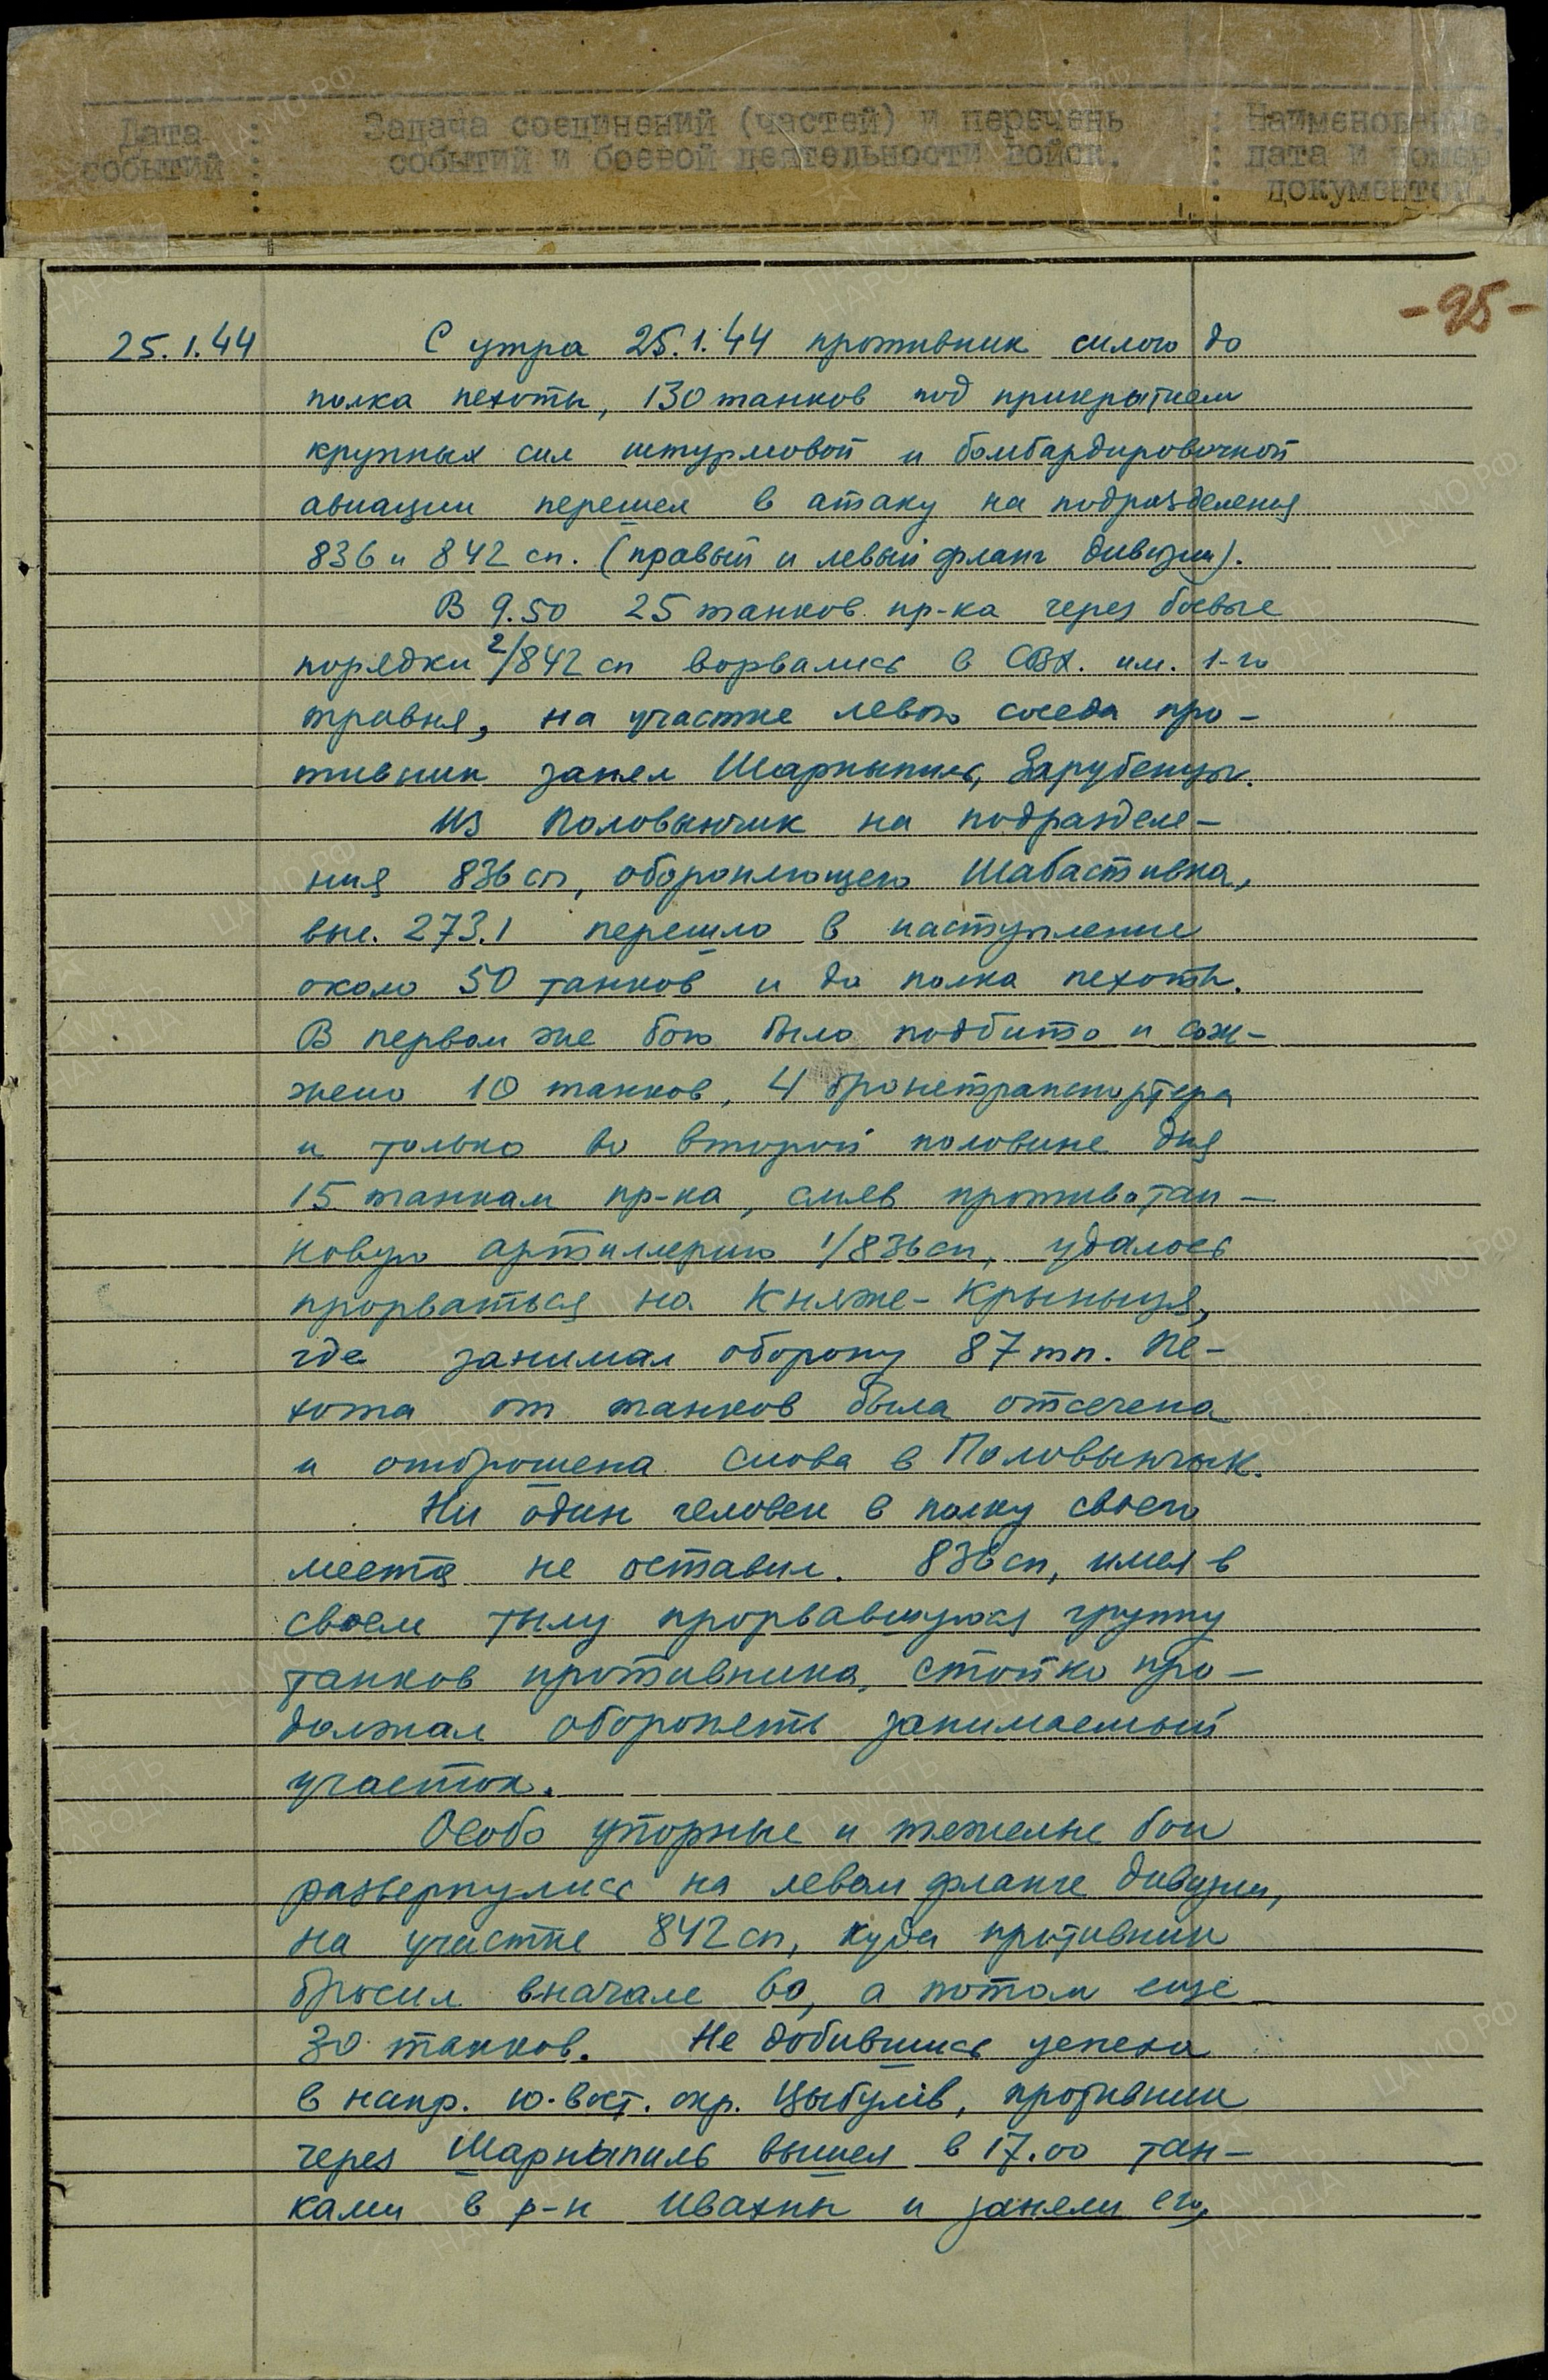 Дата : Задача соединений (частей) и перечень : Наименование,
событий : событий и боевой деятельности войск. : дата и номер
: : документов
-95-
25.1.44 С утра 25.1.44 противник силою до
полка пехоты, 130 танков под прикрытием
крупных сил штурмовой и бомбардировочной
авиации перешел в атаку на подразделения
836 и 842 сп. (правый и левый фланг дивизии).
В 9.50 25 танков пр-ка через боевые
порядки 2/842 сп ворвались в СВХ. им. 1-го
травня, на участке левого соседа про-
тивник занял Шарныпиль, Зарубенцы.
Из Половынчик на подразделе-
ния 836 сп, обороняющего Шабастивка,
выс. 273.1 перешло в наступление
около 50 танков и до полка пехоты.
В первом же бою было подбито и сож-
жено 10 танков, 4 бронетранспортера
и только во второй половине дня
15 танкам пр-ка, смяв противотан-
ковую артиллерию 1/836 сп, удалось
прорваться на Княже-Крыныця,
где занимал оборону 87 тп. Пе-
хота от танков была отсечена
и отброшена снова в Половынчык.
Ни один человек в полку своего
места не оставил. 836 сп, имея в
своем тылу прорвавшуюся группу
танков противника, стойко про-
должал оборонять занимаемый
участок.
Особо упорные и тяжелые бои
развернулись на левом фланге дивизии,
на участке 842 сп, куда противник
бросил вначале 60, а потом еще
30 танков. Не добившись успеха
в напр. ю.-вост. окр. Цыбулів, противник
через Шарныпиль вышел в 17.00 тан-
ками в р-н Ивахны и заняли его,